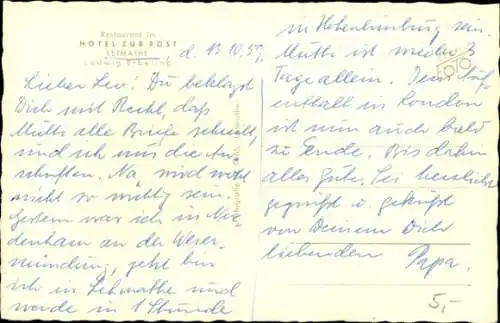 Restaurant im
HOTEL ZUR POST
LETMATHE
Ludwig Ebeling
d. 13.10.59,
Lieber Leo! Du beklagst
Dich mit Recht, daß
Mutti alle Briefe schreibt,
und ich nur die An-
schriften. Na, wird wohl
nicht so wichtig sein.
Gestern war ich in Nor-
denham an der Weser-
mündung, jetzt bin
ich in Letmathe und
werde in 1 Stunde
in Hohenlimburg sein.
Mutti ist wieder 3
Tage allein. Dein Auf-
enthalt in London
ist nun auch bald
zu Ende. Bis dahin
alles Gute. Sei herzlichst
gegrüßt u. geküßt
von Deinem Dich
liebenden Papa.
5,-